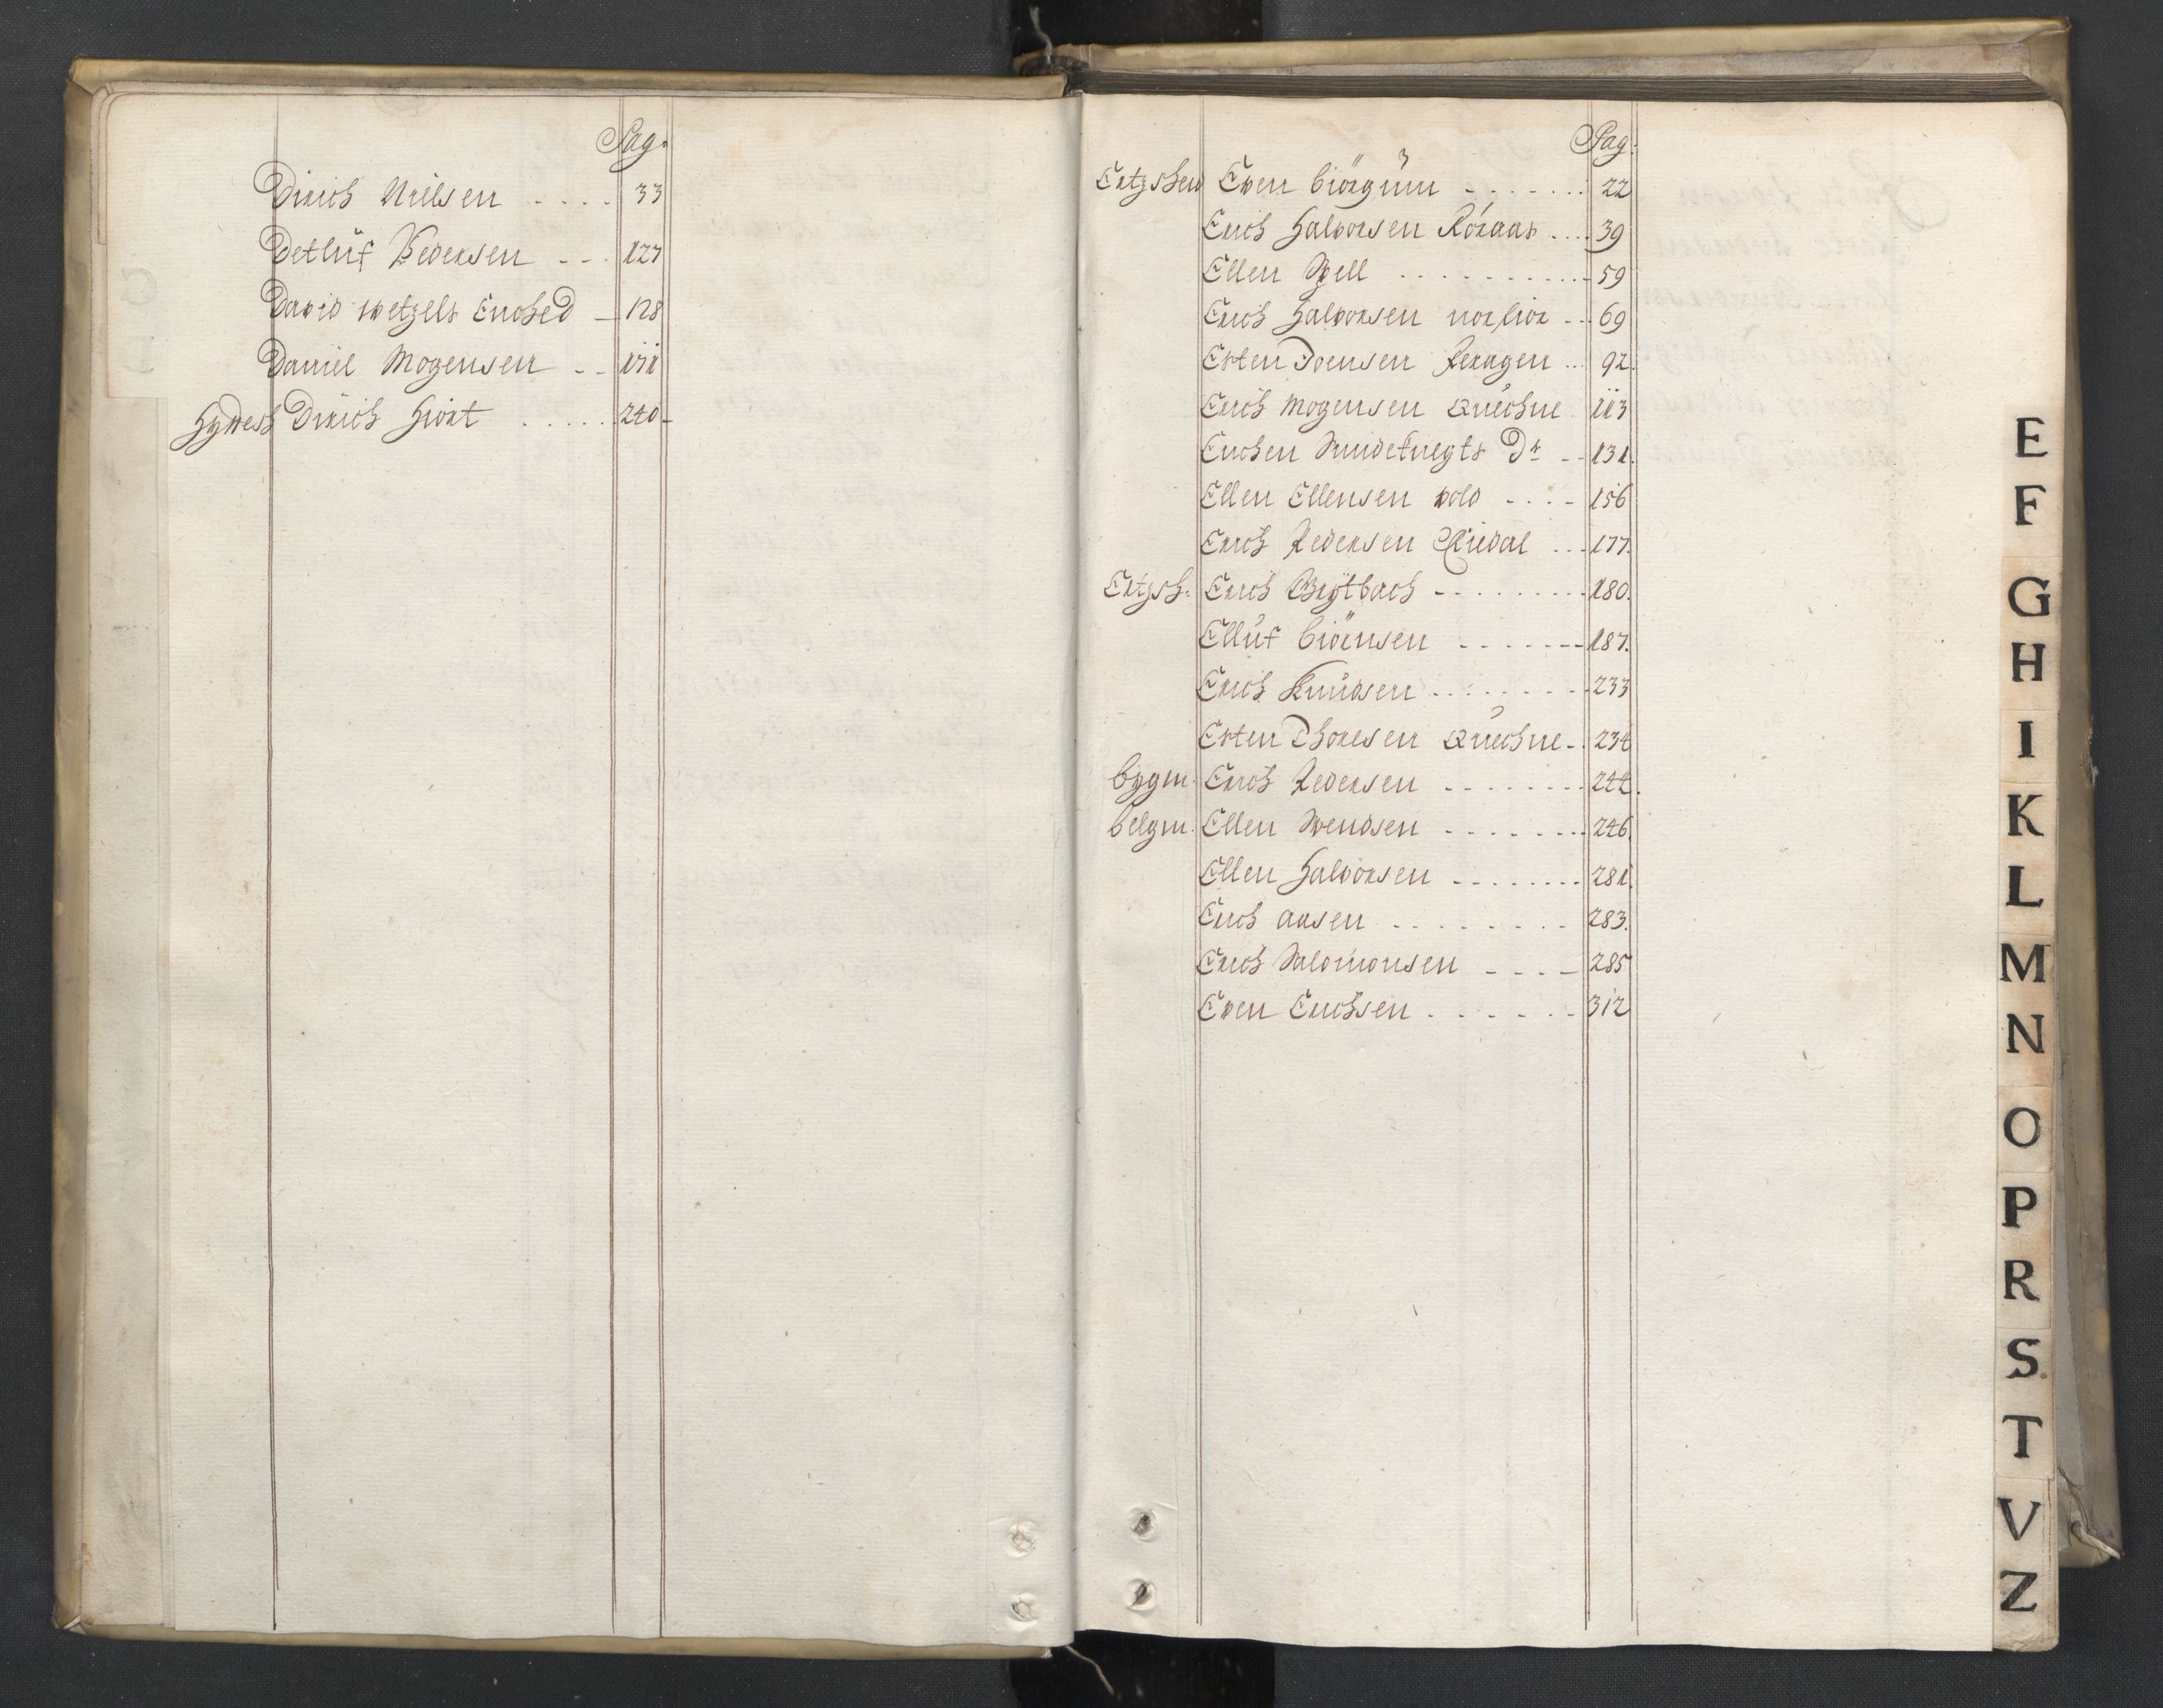 Pag.
Dirich Nielsen .... 33
Detluf Pedersen - - . 127
David wetzels Enched - 128
Daniel Mogensen - - 171
Dirich Hiort ..... 240
Pag:
Ertzsher Even Biörgum ....... 22
Erich Halvorsen Röraas .... 39
Ellen Well .......... 59
Erich Halvorsen - - . 69
Esten Joensen Feragen ... 92.
Erich Mogensen Quechne 113
Enchen Dr - - 131.
Ellen Ellensen vold - - - - 156
Erich Pedersen ... 177.
Ertzsh: Erich Brytbach - - - - - - - - - 180.
Elluf Biörnsen - - - - - - - 187.
Erich Knudsen ........ 233
Esten Thoresen Quechne - . 234
bygm. Erich Pedersen ........ 244.
belgm. Ellen Svendsen ........ 246.
Ellen Halvorsen ........ 281.
Erich Aasen ........ 283.
Erich Salomonsen - - - - 285
Even Erichsen ...... 312
E
F
G
H
I
K
L
M
N
O
P
R
S
T
V
Z